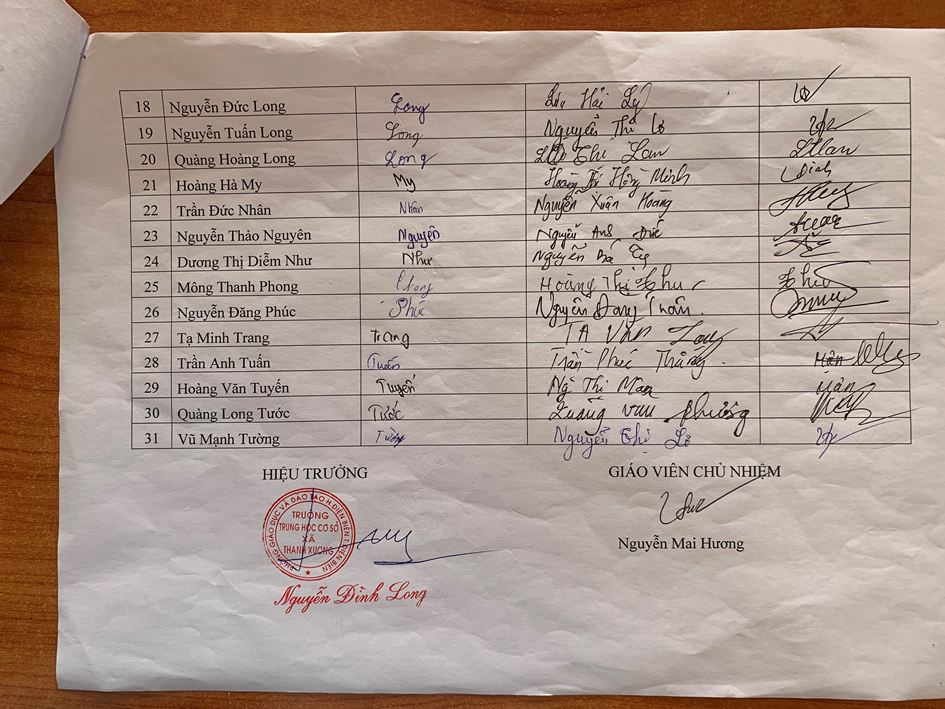 18 Nguyễn Đức Long Long Lò Hải Ly
19 Nguyễn Tuấn Long Long Nguyễn Thị Lơ
20 Quàng Hoàng Long Long Thị Lan LTLan
21 Hoàng Hà My My Hoàng Hồng Minh
22 Trần Đức Nhân Nhân Nguyễn Xuân Hoàng
23 Nguyễn Thảo Nguyên Nguyên Nguyễn Anh Đức
24 Dương Thị Diễm Như Như Nguyễn Bá
25 Mông Thanh Phong Phong Hoàng Thị Thu
26 Nguyễn Đăng Phúc Phúc Nguyễn Đăng
27 Tạ Minh Trang Trang TẠ VĂN
28 Trần Anh Tuấn Tuấn Trần Phúc Thăng
29 Hoàng Văn Tuyến Tuyến Ng Thị Man
30 Quàng Long Tước Tước Quàng Văn Phương
31 Vũ Mạnh Tường Tường Nguyễn Thị Lơ
HIỆU TRƯỞNG GIÁO VIÊN CHỦ NHIỆM
PHÒNG GIÁO DỤC VÀ ĐÀO TẠO H. ĐIỆN BIÊN T. ĐIỆN BIÊN
TRƯỜNG
TRUNG HỌC CƠ SỞ
XÃ
THANH XƯƠNG
Nguyễn Mai Hương
Nguyễn Đình Long